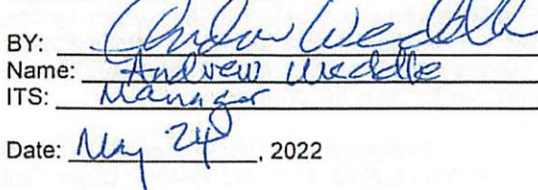 BY: Andrew Weddle
Name: Andrew Weddle
ITS: Manager
Date: May 24, 2022